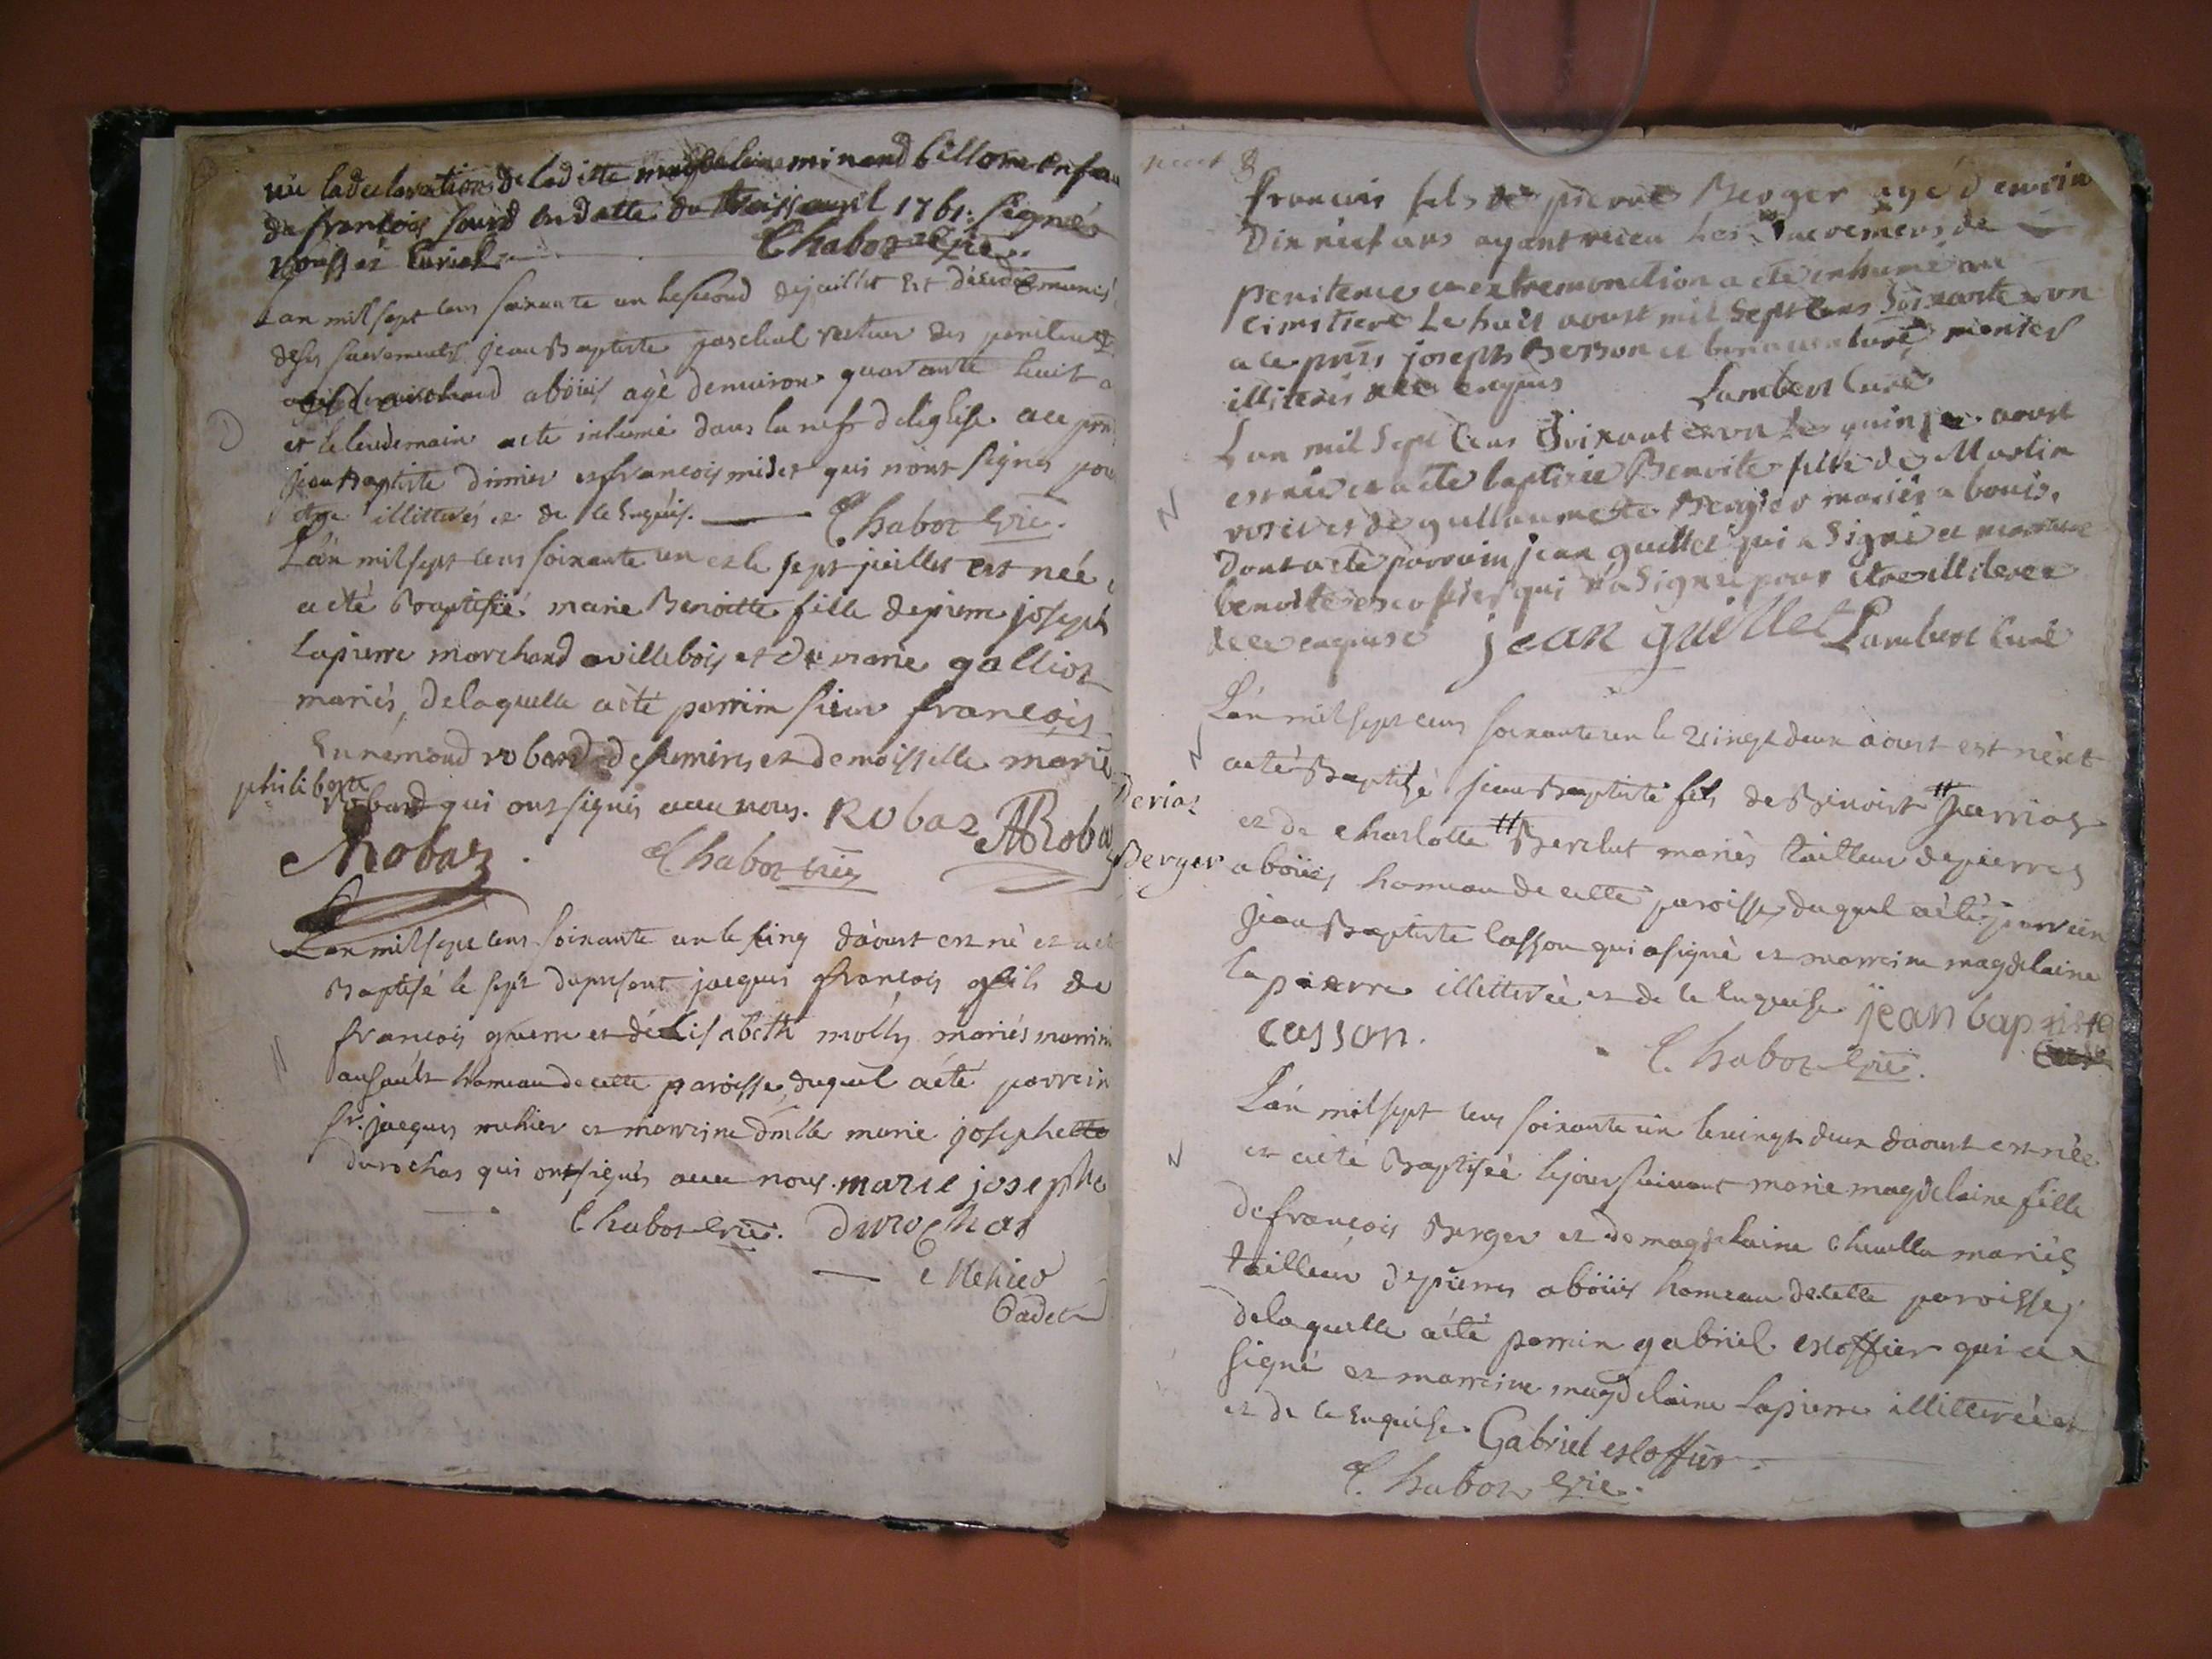 vüe la declaration de laditte magdelaine minand billon enfan
de francois sourd en datte du trois avril 1761. signés
Chabot vrie.
L'an mil sept cens soixante un le second de juillet est décédé munis
de ses sacremens jean Baptiste paschal recteur des penitens
aboüis agé d'environ quarante huit a
et le lendemain a eté inhumé dans la nef de leglise a ce pns
jean Baptiste dimier et francois milet qui n'ont signés pou
etre illitterés et de ce Enquis. Chabot vrie.
L'an mil sept cens soixante un et le sept juillet est née
a eté Baptisée marie Benoitte fille de pierre joseph
Lapierre marchand a villebois et de marie galliot
mariés, de laquelle a été parrein sieur francois
Ennemond robard et demoisselle marie
philiberte
Robard qui ont signés avec nous. Robaz ARoba
Robaz Chabot vrie
L'an mil sept cens soixante un le cinq d'aoust est né et a et
Baptisé le sept du present jacques francois fils de
francois guerre et d'Elisabeth molly mariés
au sault hameau de cette paroisse, duquel a été parrein
sr. jacques mehier et marreine dmlle marie josephette
durochas qui ont signés avec nous. marie josephe
Chabot vrie. durochas
Mehier
Cadet
francois fils de pierre Berger agé d'environ
Dix neuf ans ayant recu les sacremens de
penitence et extremonction a eté inhumé au
cimitiere le huit aoust mil sept cens soixante un
a ce pnts joseph Besson et bonaventure monier
illiterés de ce enquis Lambert Curé
L'an mil sept Cens Soixante un le quinze aoust
est née et a eté baptisée Benoite fille de Martin
et de gullaumette Bergier mariés a bouis,
dont a eté parrain jean guillet qui a signé et marraine
benoite escofier qui n'a signé pour etre illiteree
de ce enquise jean guillet Lambert Curé
L'an mil sept cens soixante un le vingt deux aoust est né et
a eté Baptisé jean Baptiste fils de Benoist Perrioz
Perioz
et de charlotte Berclut mariés tailleur de pierres
Berger aboüis hameau de cette paroisse, duquel a été parrein
jean Baptiste Casson qui a signé et marreine magdelaine
Lapierre illitterée et de ce Enquise jean baptiste
casson. Chabot vrie.
L'an mil sept cens soixante un le vingt deux d'aoust est née
et a eté Baptisée le jour suivant marie magdelaine fille
de francois Berger et de magdelaine mariés
tailleur de pierres aboüis hameau de cette paroisse,
de laquelle a eté parrein gabriel escoffier qui a
signé et marreine magdelaine Lapierre illitterée
et de ce Enquise. Gabriel escoffier.
Chabot vrie.